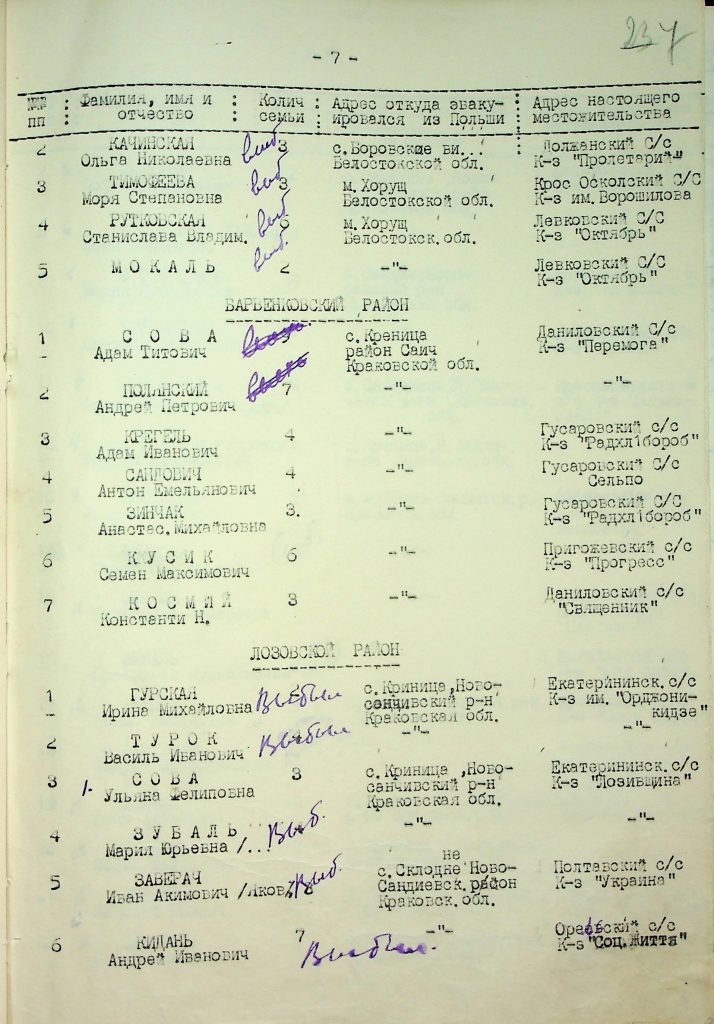 237
- 7 -
№№ пп : Фамилия, имя и отчество : Колич семьи : Адрес откуда эваку- ировался из Польши : Адрес настоящего местожительства
2 КАЧИНСКАЯ 3 с.Боровские ви... Должанский С/с
Ольга Николаевна выб Белостокской обл. К-з "Пролетарий"
3 ТИМОФЕЕВА 3 м. Хорущ Крос Осколский С/С
Моря Степановна выб Белостокской обл. К-з им. Ворошилова
4 РУТКОВСКАЯ м. Хорущ Левковский С/с
Станислава Владим. выб Белостокск. обл. К-з "Октябрь"
5 М О К А Л Ь выб. 2 -"- Левковский С/с
К-з "Октябрь"
БАРВЕНКОВСКИЙ РАЙОН
1 С О В А с. Креница Даниловский С/с
- Адам Титович район Саич К-з "Перемога"
Краковской обл.
2 ПОЛЯНСКИЙ 7 -"- -"-
Андрей Петрович
3 КРЕГЕЛЬ 4 -"- Гусаровский С/с
Адам Иванович К-з "Радхлiбороб"
4 САНДОВИЧ 4 -"- Гусаровский С/с
Антон Емельянович Сельпо
5 ЗИНЧАК 3. -"- Гусаровский С/С
Анастас. Михайловна К-з "Радхлiбороб"
6 К У С И К 6 -"- Пригожевский с/с
Семен Максимович К-з "Прогресс"
7 К О С М И Й 3 -"- Даниловский с/с
Константи Н. "Священник"
ЛОЗОВСКОЙ РАЙОН
1 ГУРСКАЯ с. Криница, Ново- Екатеринінск. с/с
- Ирина Михайловна Выбыл санчивский р-н К-з им. "Орджони-
Краковская обл. кидзе"
2 Т У Р О К -"- -"-
Василь Иванович Выбыл
3 С О В А 3 с. Криница, Ново- Екатерининск. с/с
1. Ульяна Фелиповна санчивский р-н К-з "Лозивщина"
Краковская обл.
4 З У Б А Л Ь Выб. -"- -"-
Мария Юрьевна /...
не
5 ЗАВЕРАЧ Выб. с. Склодне Ново- Полтавский с/с
Иван Акимович /Яков/ Сандиевск. район К-з "Украина"
Краковск. обл.
6 КИДАНЬ 7 -"- с/с
Андрей Иванович Выбыл. К-з "Соц. Життя"